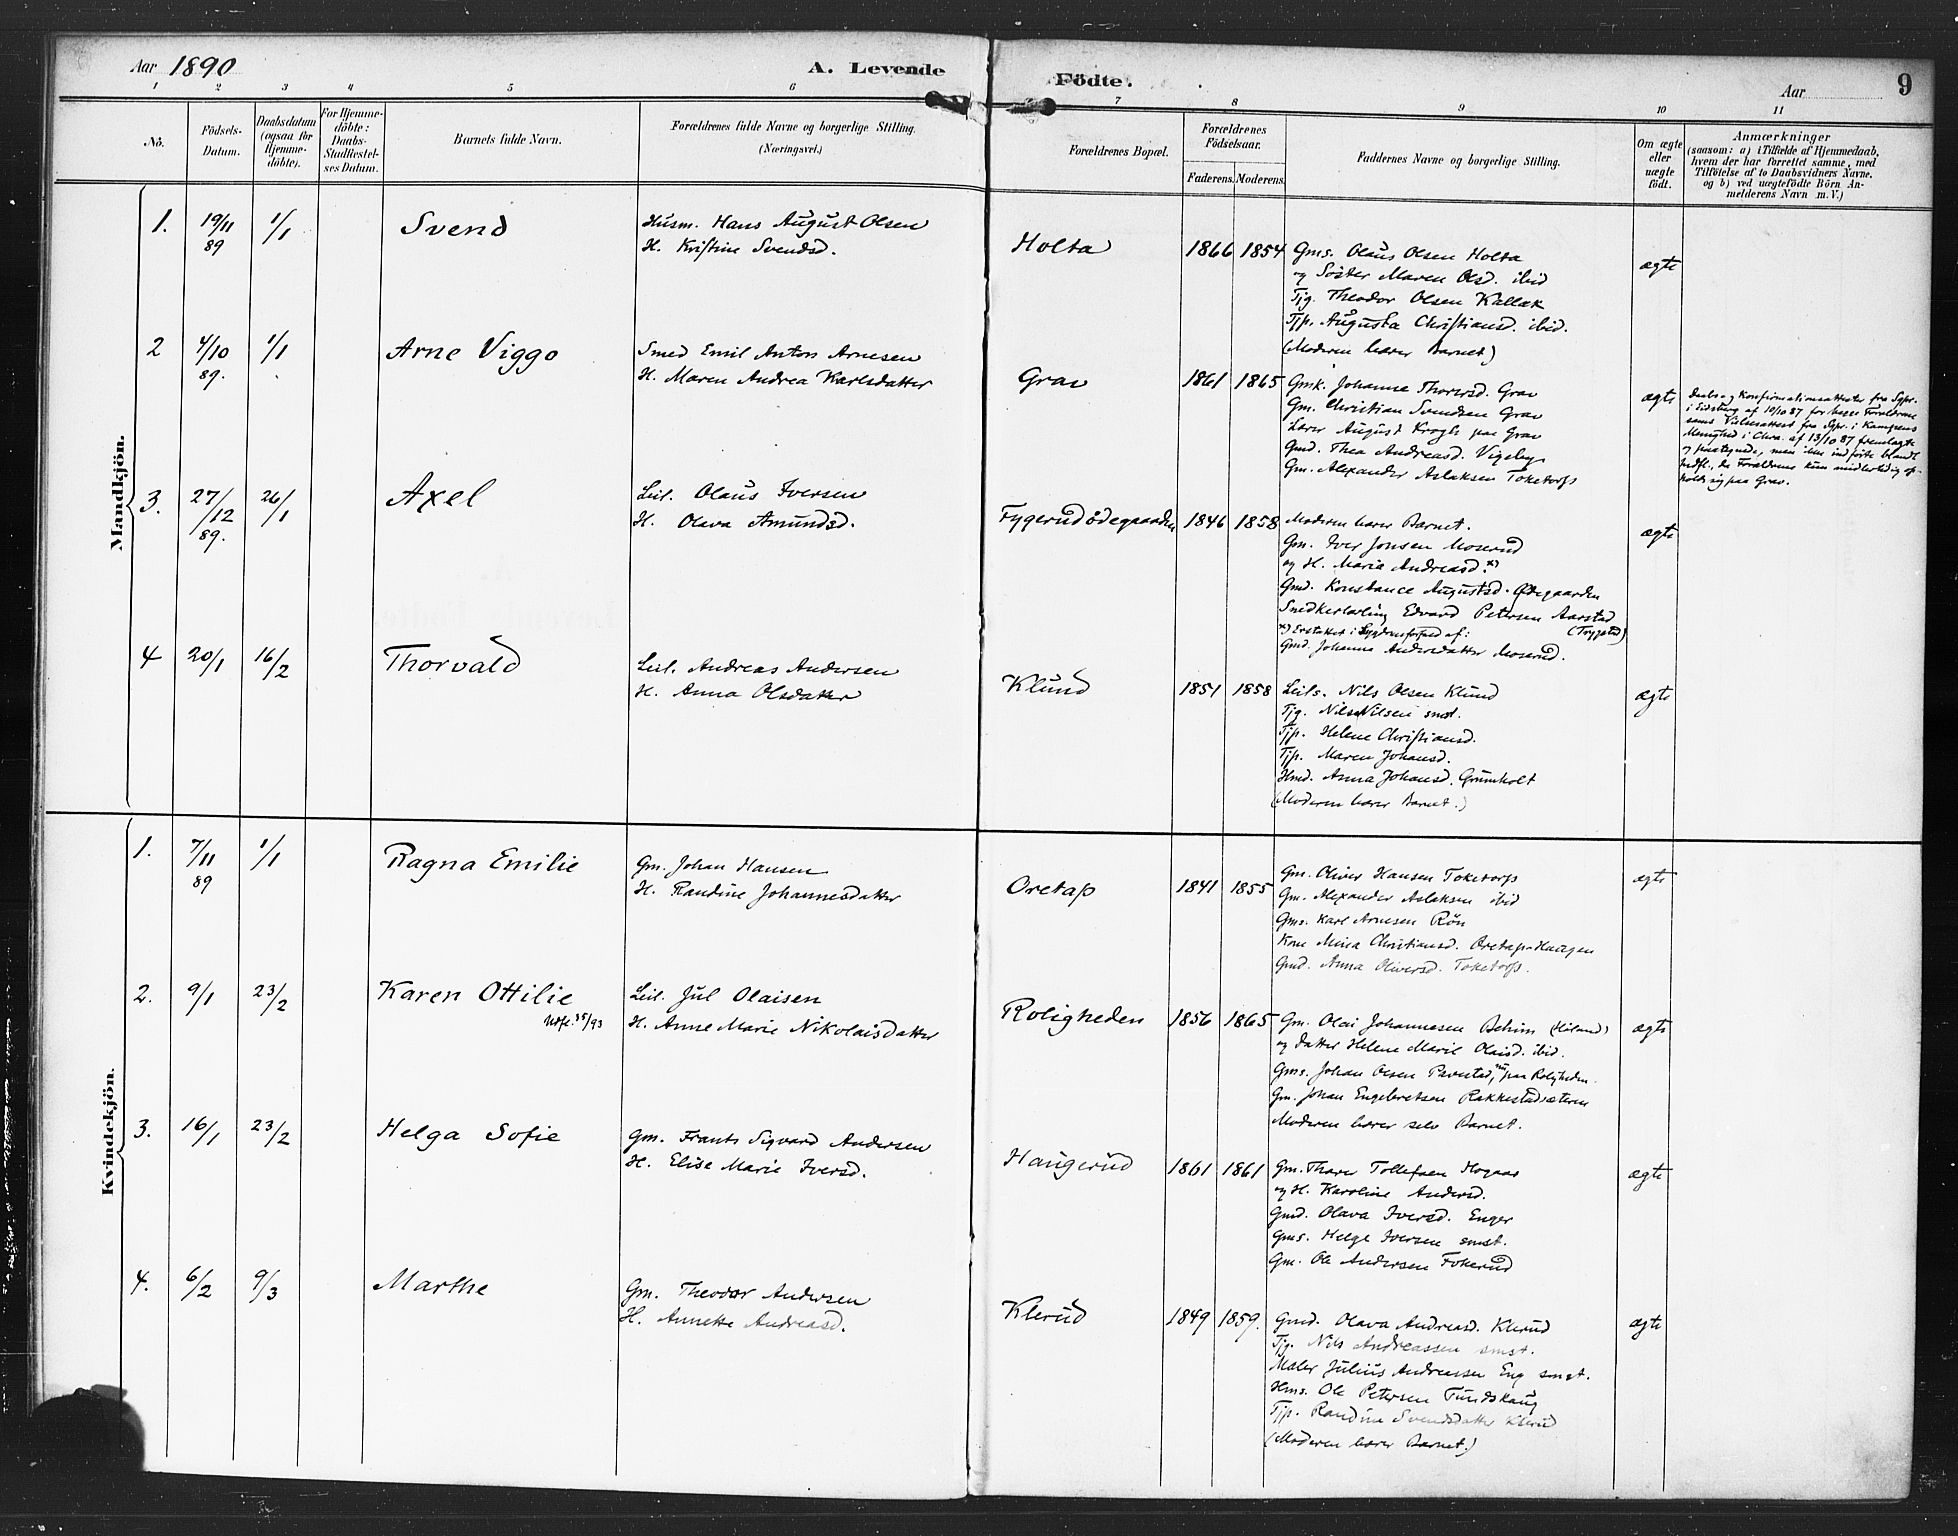 Aar 1890
A. Levende Födte.
Aar
9
1 2 3 4 5 6 7 8 9 10 11
No.
Födsels-Datum.
Daabsdatum (ogsaa for Hjemme-döbte).
For Hjemme-döbte: Daabs-Stadfæstel-ses Datum.
Barnets fulde Navn.
Forældrenes fulde Navne og borgerlige Stilling. (Næringsvei.)
Forældrenes Bopæl.
Forældrenes Födselsaar.
Faderens. Moderens.
Faddernes Navne og borgerlige Stilling.
Om ægte eller uægte födt.
Anmærkninger
(saasom: a) i Tilfælde af Hjemmedaab,
hvem der har forrettet samme, med
Tilföielse af to Daabsvidners Navne,
og b) ved uægtefödte Börn An-
melderens Navn m.V.)
Mandkjön.
1. 19/11 89 1/1 Svend
Husm. Hans August Olsen
H. Kristine Svendsd.
Holta 1866 1854
Gms. Olaus Olsen Holta
og Søster Maren Olsd. ibid
Tjg. Theodor Olsen Kallæk
Tjp. Augusta Christiansd. ibid.
(Moderen bærer Barnet)
ægte
2 4/10 89. 1/1 Arne Viggo
Smed Emil Anton Arnesen
H. Maren Andrea Karlsdatter
Grav 1861 1865
Gmk. Johanne Thorersd. Grav
Gm. Christian Svendsen Grav
Lærer August Krogh paa Grav
Gmd. Thea Andreasd. Vigeby
Gm. Alexander Aslaksen Toketorp
ægte
Daabs- og Konfirmationsattester fra Spr.
i Eidsberg af 10/10 87 for begge Forældrene
samt Vielsesattest fra Spr. i Kampens
Menighed i Chra. af 13/10 87 fremlagte
og paategnede, men ikke indførte blandt
Indfl., da Forældrene kun midlertidig op-
holdt sig paa Grav.
3. 27/12 89. 26/1 Axel
Leil. Olaus Iversen
H. Olava Amundsd.
Fygerudødegaarden 1846 1858
Moderen bærer Barnet.
Gm. Iver Jonsen Moserud
og H. Maria Andreasd. x)
Gmd. Konstance Augustsd. Ødegaarden
Snedkerlærling Edvard Petersen Aarstad
(Trygstad)
x) Erstattet i Sygdomsforfald af:
Gmd. Johanne Andersdatter Moserud.
ægte
4 20/1 16/2 Thorvald
Leil. Andreas Andersen
H. Anna Olsdatter
Klund 1851 1858
Leils. Nils Olsen Klund
Tjg. Nils Nilsen smst.
Tjp. Helene Christiansd.
Tjp. Maren Johansd.
Hmd. Anna Johansd. Grumholt
(Moderen bærer Barnet.)
ægte
Kvindekjön.
1. 7/11 89 1/1 Ragna Emilie
Gm. Johan Hansen
H. Randine Johannesdatter
Oretap 1841 1855
Gm. Oliver Hansen Toketorp
Gm. Alexander Aslaksen ibid
Gms. Karl Arnesen Røn
Kone Mina Christiansd. Oretap-Haugen
Gmd. Anna Oliversd. Toketorp.
ægte
2. 9/1 23/2 Karen Ottilie
Udfl. 35/93
Leil. Jul Olaisen
H. Anne Marie Nikolaisdatter
Roligheden 1856 1865
Gm. Olai Johannesen Behim (Høland)
og Datter Helene Marie Olaisd. ibid.
Gms. Johan Olsen Pavestad, nu paa Roligheden.
Gm. Johan Engebretsen Rakkestadsæteren
Moderen bærer selv Barnet.
ægte
3. 16/1 23/2 Helga Sofie
Gm. Frants Sigvard Andersen
H. Elise Marie Iversd.
Haugerud 1861 1861
Gm. Thorer Tollefsen Hogaas
og H. Karoline Andersd.
Gmd. Olava Iversd. Enger
Gms. Helge Iversen smst.
Gm. Ole Andersen Fokerud
ægte
4. 6/2 9/3 Marthe
Gm. Theodor Andersen
H. Annette Andreasd.
Klerud 1849 1859.
Gmd. Olava Andreasd. Klerud
Tjg. Nils Andreassen smst.
Maler Julius Andreassen Eng smst.
Hms. Ole Petersen Tundskaug
Tjp. Randine Svendsdatter Klerud
(Moderen bærer Barnet.)
ægte